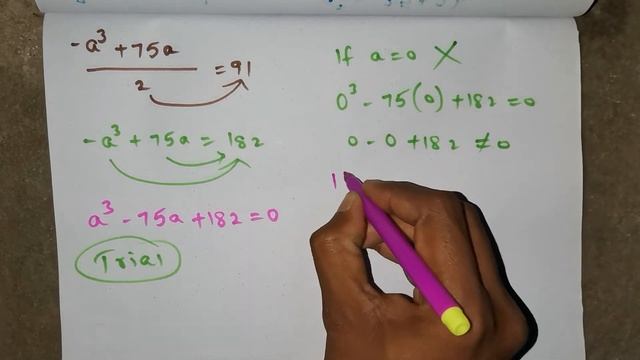 -a³ + 75a
2
= 91
-a³ + 75a = 182
a³ - 75a + 182 = 0
Trial
If a = 0 X
0³ - 75(0) + 182 = 0
0 - 0 + 182 ≠ 0